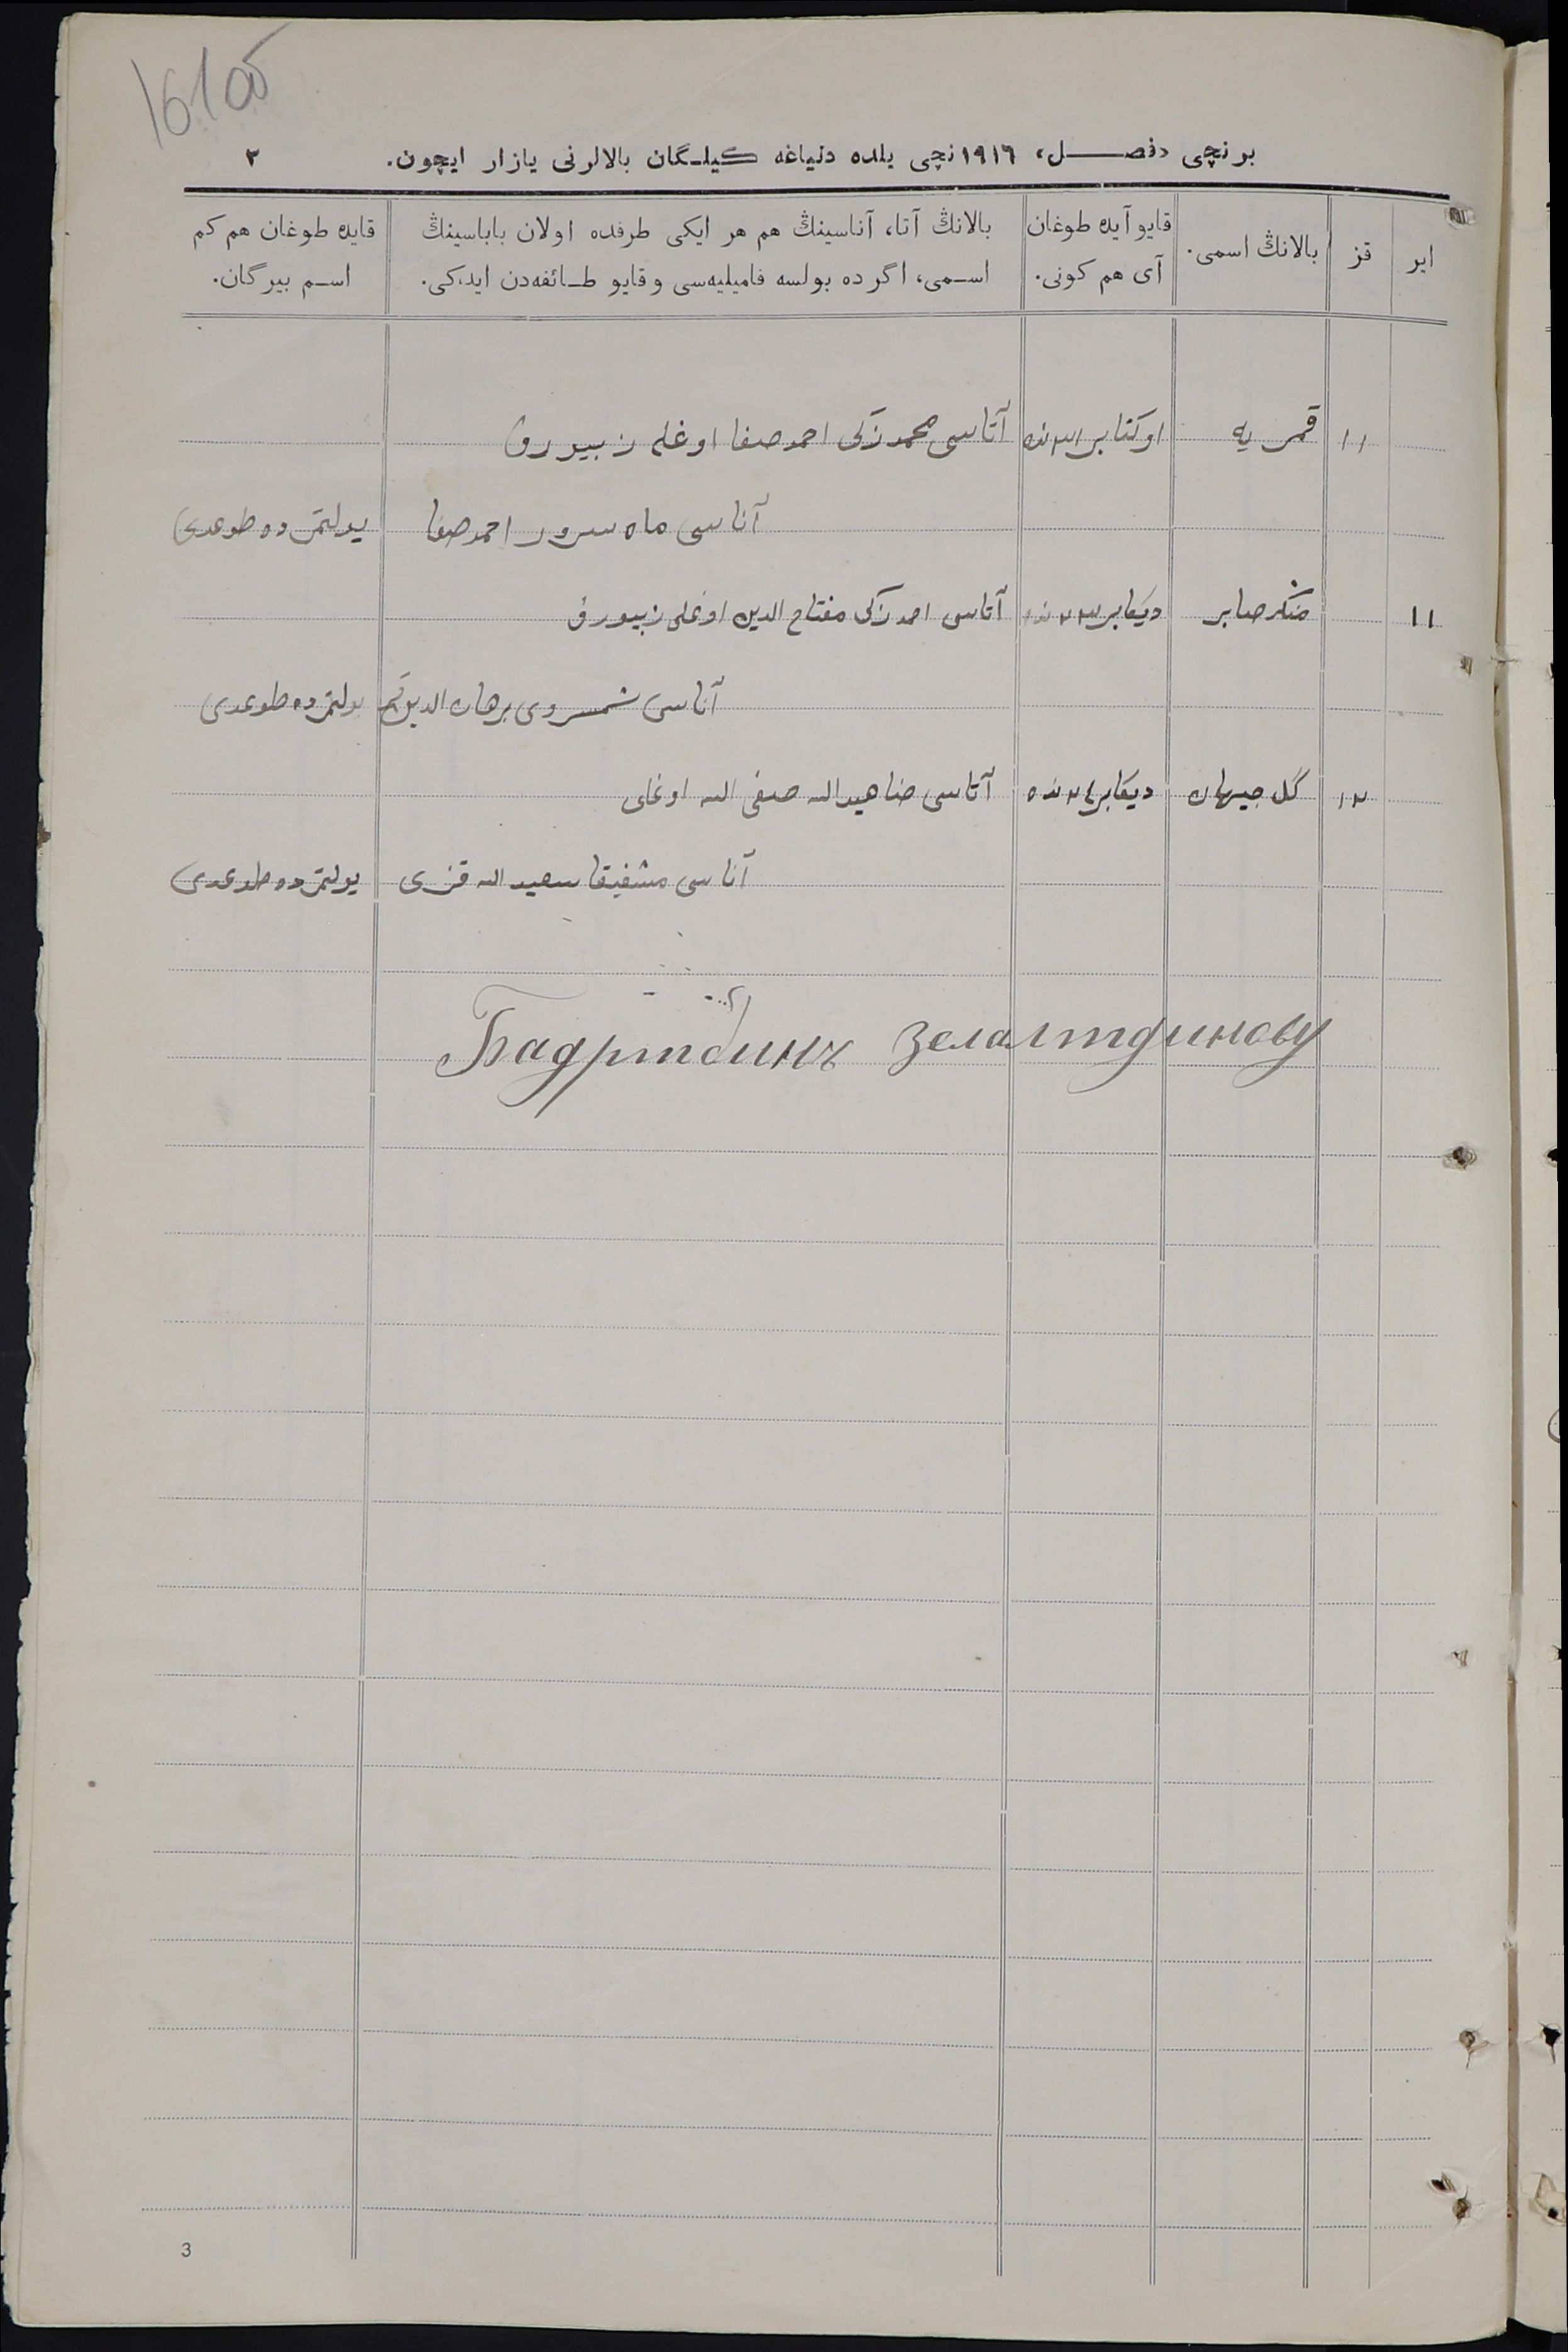 1610б
برنچی «فصل» ١٩١٦نچی یلده دنیاغه کیلگان بالالرنی یازار ایچون. ٣
ایر
قز
بالانڭ اسمی.
قایو آیده طوغان
آی هم کونی.
بالانڭ آتا، آناسینڭ هم هر ایکی طرفده اولان باباسینڭ
اسمی، اگرده بولسه فامیلیه‌سی و قایو طائفه‌دن ایدکی.
قایده طوغان هم کم
اسم بیرگان.
١١ قمریه اوکتابر ٣١ نده آتاسی محمدزکی احمدصفا اوغلی زبیروف
آناسی ماه سرور احمدصفا یولتمرده طوغدی
١١ صابر دیکابر ٢٣ نده آتاسی احمدزکی مفتاح الدین اوغلی زبیروف
آناسی برهان الدین یولتمرده طوغدی
١٢ گل جیهان دیکابر ٢٤ نده آتاسی ضاهیدالله صفی الله اوغلی
آناسی مشفیقا سعیدالله قزی یولتمرده طوغدی
Бадртдинъ
3